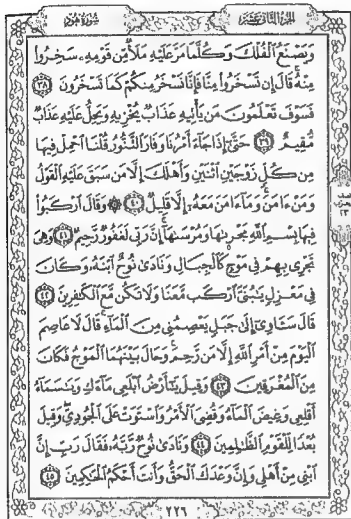 الجزء الثاني عشر
سورة هود
وَيَصْنَعُ ٱلْفُلْكَ وَكُلَّمَا مَرَّ عَلَيْهِ مَلَأٌ مِّن قَوْمِهِۦ سَخِرُوا۟
مِنْهُ قَالَ إِن تَسْخَرُوا۟ مِنَّا فَإِنَّا نَسْخَرُ مِنكُمْ كَمَا تَسْخَرُونَ ٣٨
فَسَوْفَ تَعْلَمُونَ مَن يَأْتِيهِ عَذَابٌ يُخْزِيهِ وَيَحِلُّ عَلَيْهِ عَذَابٌ
مُّقِيمٌ ٣٩ حَتَّىٰٓ إِذَا جَآءَ أَمْرُنَا وَفَارَ ٱلتَّنُّورُ قُلْنَا ٱحْمِلْ فِيهَا
مِن كُلٍّ زَوْجَيْنِ ٱثْنَيْنِ وَأَهْلَكَ إِلَّا مَن سَبَقَ عَلَيْهِ ٱلْقَوْلُ
وَمَنْ ءَامَنَ وَمَآ ءَامَنَ مَعَهُۥٓ إِلَّا قَلِيلٌ ٤٠ ۞ وَقَالَ ٱرْكَبُوا۟
فِيهَا بِسْمِ ٱللَّهِ مَجْر۪ىٰهَا وَمُرْسَىٰهَآ إِنَّ رَبِّى لَغَفُورٌ رَّحِيمٌ ٤١ وَهِىَ
تَجْرِى بِهِمْ فِى مَوْجٍ كَٱلْجِبَالِ وَنَادَىٰ نُوحٌ ٱبْنَهُۥ وَكَانَ
فِى مَعْزِلٍ يَٰبُنَىَّ ٱرْكَب مَّعَنَا وَلَا تَكُن مَّعَ ٱلْكَٰفِرِينَ ٤٢
قَالَ سَـَٔاوِىٓ إِلَىٰ جَبَلٍ يَعْصِمُنِى مِنَ ٱلْمَآءِ قَالَ لَا عَاصِمَ
ٱلْيَوْمَ مِنْ أَمْرِ ٱللَّهِ إِلَّا مَن رَّحِمَ وَحَالَ بَيْنَهُمَا ٱلْمَوْجُ فَكَانَ
مِنَ ٱلْمُغْرَقِينَ ٤٣ وَقِيلَ يَٰٓأَرْضُ ٱبْلَعِى مَآءَكِ وَيَٰسَمَآءُ
أَقْلِعِى وَغِيضَ ٱلْمَآءُ وَقُضِىَ ٱلْأَمْرُ وَٱسْتَوَتْ عَلَى ٱلْجُودِىِّ وَقِيلَ
بُعْدًا لِّلْقَوْمِ ٱلظَّٰلِمِينَ ٤٤ وَنَادَىٰ نُوحٌ رَّبَّهُۥ فَقَالَ رَبِّ إِنَّ
ٱبْنِى مِنْ أَهْلِى وَإِنَّ وَعْدَكَ ٱلْحَقُّ وَأَنتَ أَحْكَمُ ٱلْحَٰكِمِينَ ٤٥
٢٢٦